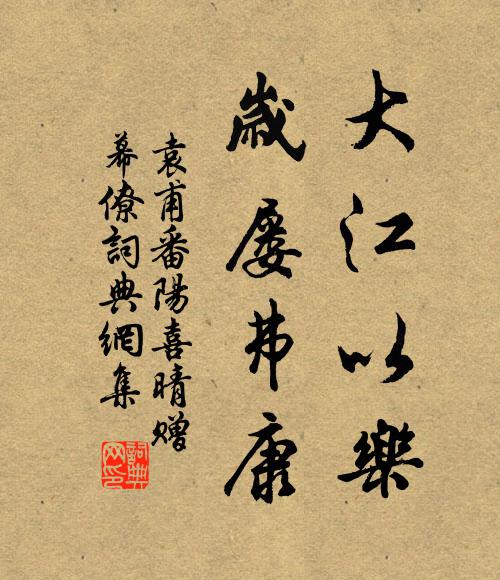 大江以樂
歲屡弗康
袁甫番陽喜晴贈
幕僚詞典網集
詞典网印